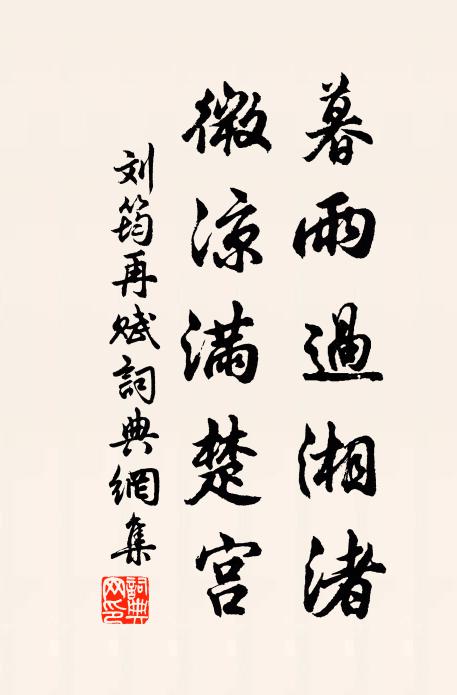 暮雨過湘渚
微凉滿楚宫
刘筠再赋詞典網集
詞典网印